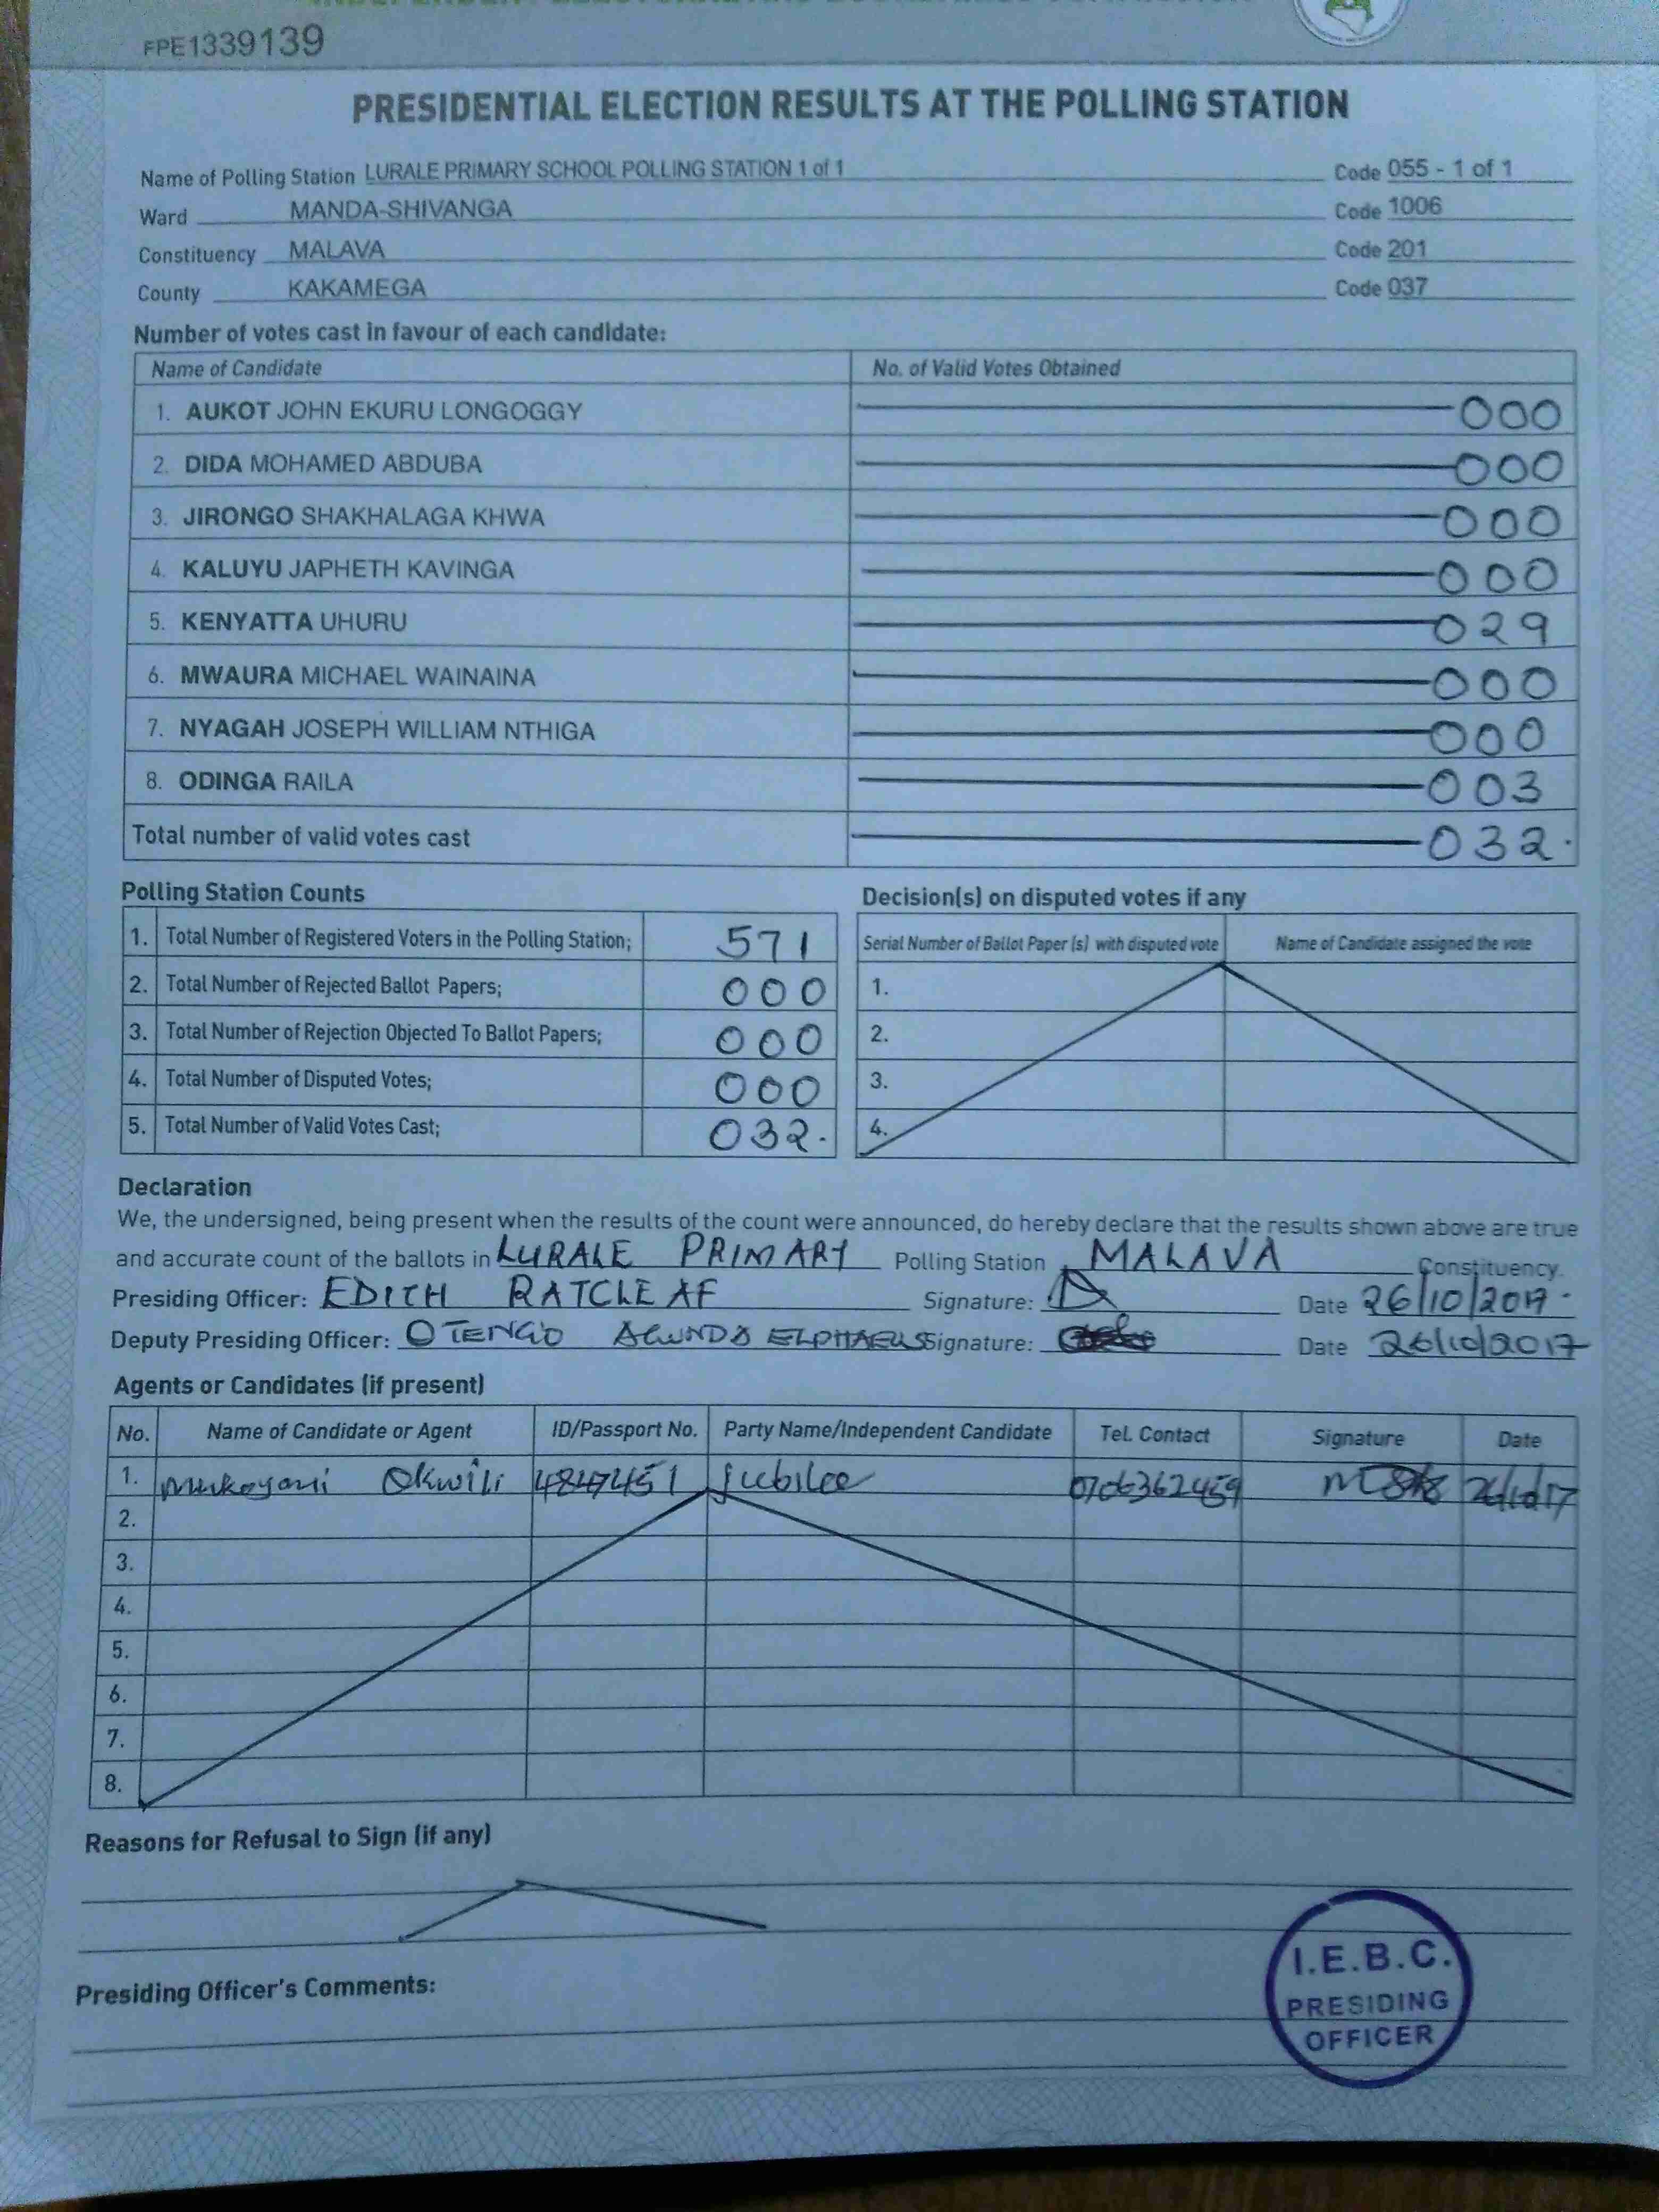 FPE1339139
PRESIDENTIAL ELECTION RESULTS AT THE POLLING STATION
Name of Polling Station LURALE PRIMARY SCHOOL POLLING STATION 1 of 1 Code 055 - 1 of 1
Ward MANDA-SHIVANGA Code 1006
Constituency MALAVA Code 201
County KAKAMEGA Code 037
Number of votes cast in favour of each candidate:
Name of Candidate No. of Valid Votes Obtained
1. AUKOT JOHN EKURU LONGOGGY 000
2. DIDA MOHAMED ABDUBA 000
3. JIRONGO SHAKHALAGA KHWA 000
4. KALUYU JAPHETH KAVINGA 000
5. KENYATTA UHURU 029
6. MWAURA MICHAEL WAINAINA 000
7. NYAGAH JOSEPH WILLIAM NTHIGA 000
8. ODINGA RAILA 003
Total number of valid votes cast 032.
Polling Station Counts Decision(s) on disputed votes if any
Serial Number of Ballot Paper (s) with disputed vote Name of Candidate assigned the vote
1. Total Number of Registered Voters in the Polling Station; 571
2. Total Number of Rejected Ballot Papers; 000 1.
3. Total Number of Rejection Objected To Ballot Papers; 000 2.
4. Total Number of Disputed Votes; 000 3.
5. Total Number of Valid Votes Cast; 032. 4.
Declaration
We, the undersigned, being present when the results of the count were announced, do hereby declare that the results shown above are true
and accurate count of the ballots in LURALE PRIMARY Polling Station MALAVA Constituency.
Presiding Officer: EDITH RATCLEAF Signature: Date 26/10/2017.
Deputy Presiding Officer: OTENGO Signature: Date 26/10/2017
Agents or Candidates (if present)
No. Name of Candidate or Agent ID/Passport No. Party Name/Independent Candidate Tel. Contact Signature Date
1. Mukoyani Okwili 4847451 Jubilee 0706362459 26/10/17
2.
3.
4.
5.
6.
7.
8.
Reasons for Refusal to Sign (if any)
Presiding Officer's Comments:
I.E.B.C.
PRESIDING
OFFICER